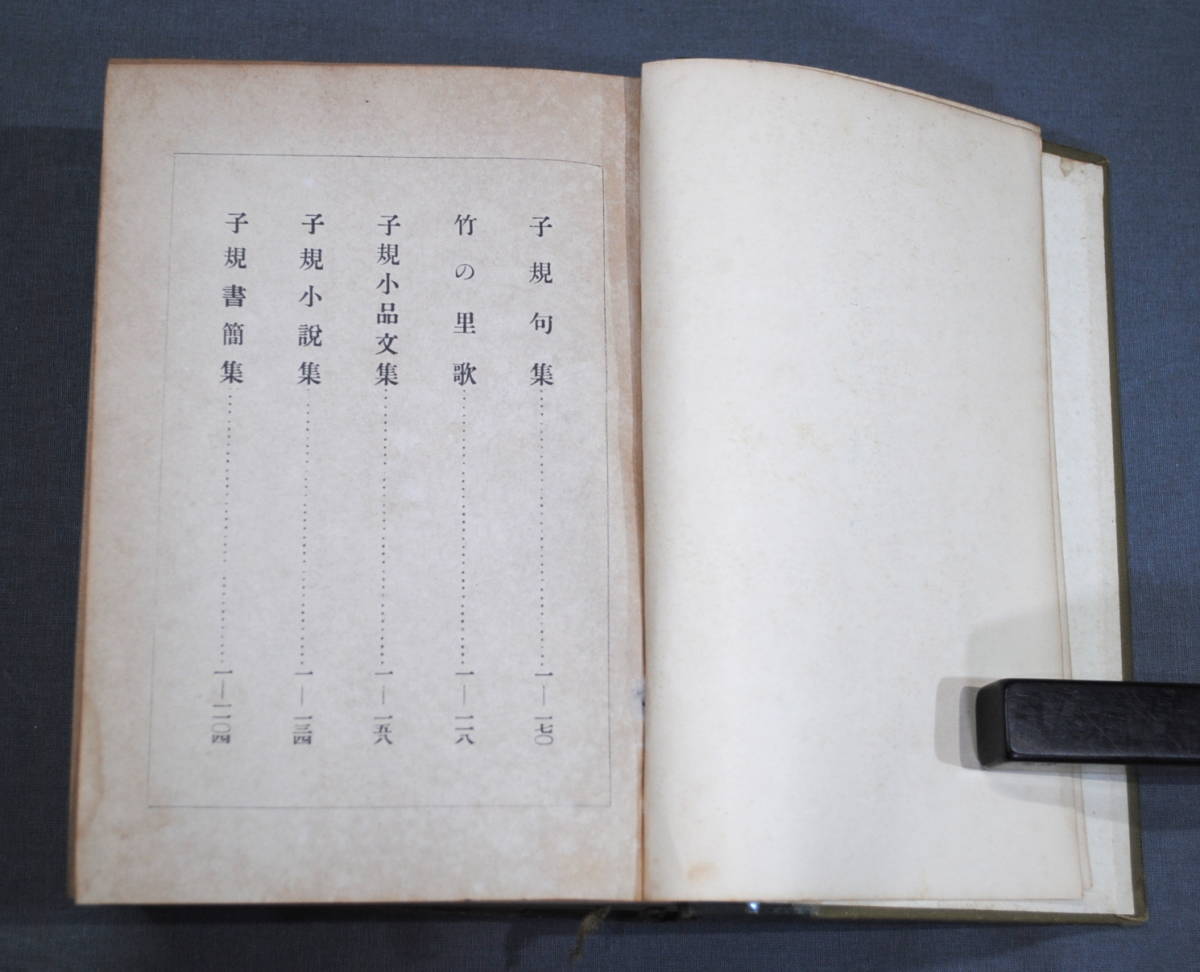 子規句集……………………一—一七〇
竹の里歌……………………一—一一八
子規小品文集……………………一—一五八
子規小說集……………………一—一三四
子規書簡集……………………一—二〇四